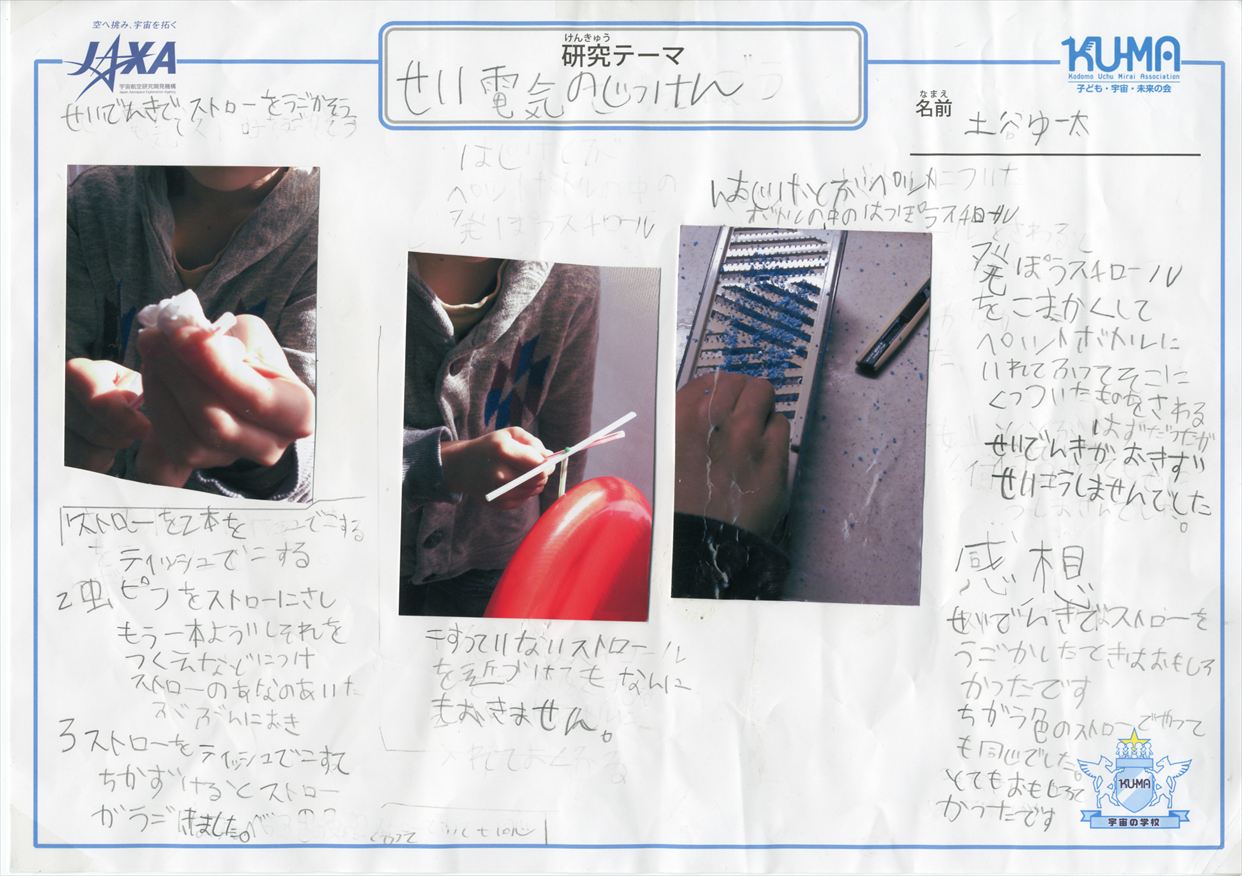 空へ挑み、宇宙を拓く
JAXA
宇宙航空研究開発機構
Japan Aerospace Exploration Agency
けんきゅう
研究テーマ
せい電気のじっけん
KU-MA
Kodomo Uchu Mirai Association
子ども・宇宙・未来の会
なまえ
名前
土谷ゆ一太
せいでんきでストローをうごかそう
1ストローを2本を
ティッシュでこする
2虫ピンをストローにさし
もう一本よういしそれを
つくえなどにつけ
ストローのあなのあいた
ぶぶんにおき
3ストローをティッシュでこすて
ちかずけるとストロー
がうごきました。
はじけとが
ペットボトルの中の
発ぽうスチロール
こすっていないストロール
を近づけてもなんに
もおきません。
ボトルの中のはっぽうスチロール
発ぽうスチロール
をこまかくして
ペットボトルに
いれてふってそこに
くっついたものをさわる
はずだったが
せいでんきがおきず
せいこうしませんでした。
感想
せいでんきでストローを
うごかしたときはおもしろ
かったです
ちがう色のストローでやって
も同じでした。
とてもおもしろて
かったです
KU-MA
宇宙の学校